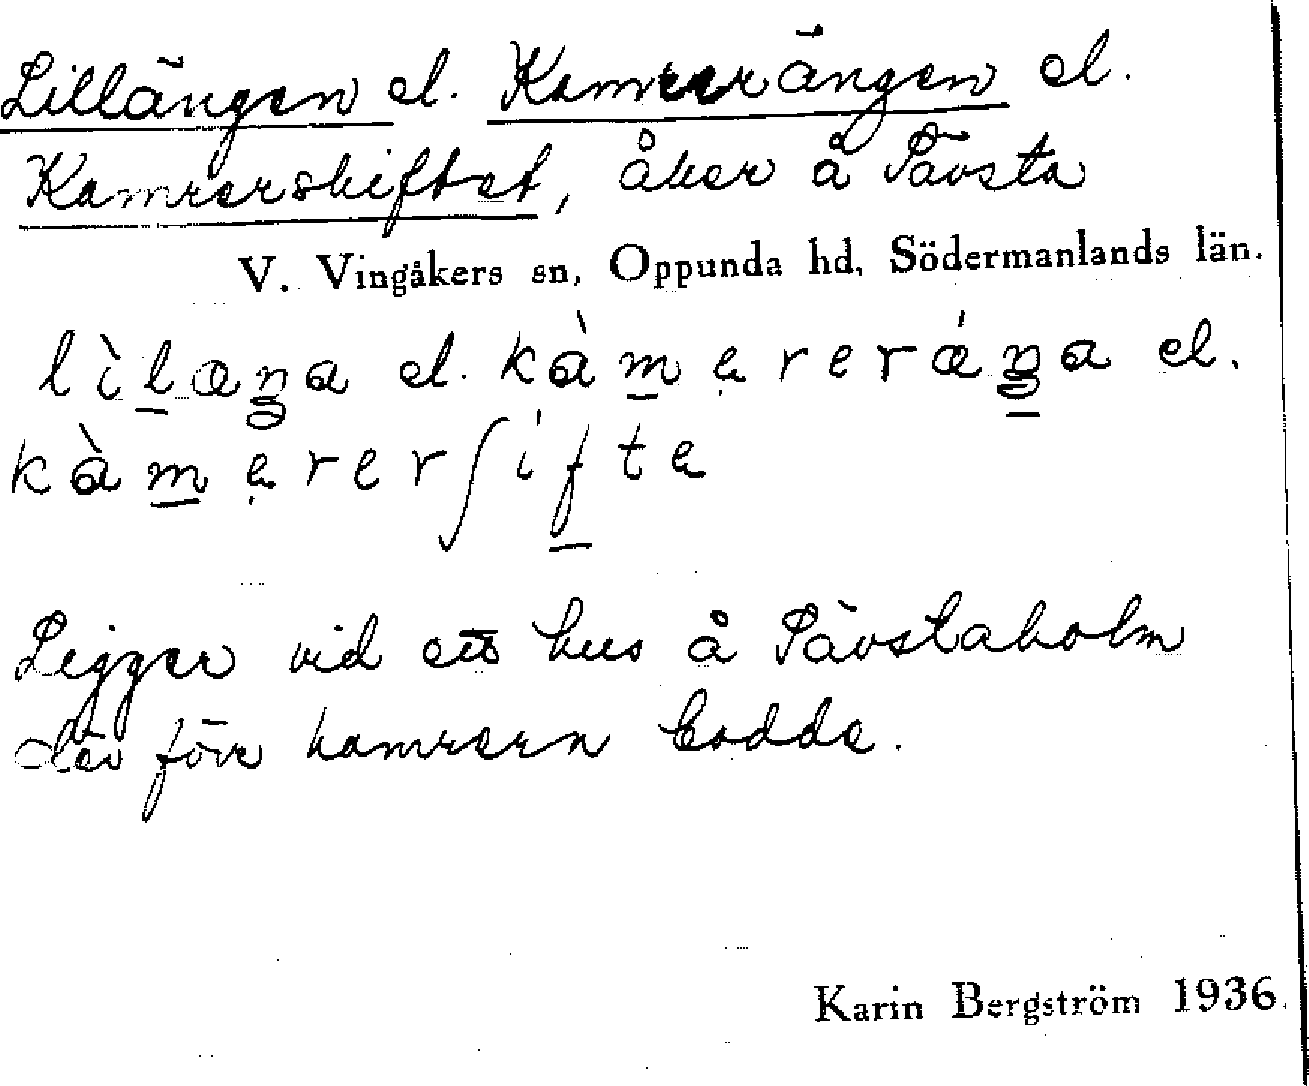 Lillängen el. Kamrerängen el.
Kamrerskiftet, åker å Pävsta
V. Vingåkers sn, Oppunda hd, Södermanlands län.
lìlæŋa el. kàmererǽŋa el.
kàmererʃifte
Ligger vid ett hus å Pävstaholm
där förr kamrern bodde.
Karin Bergström 1936.